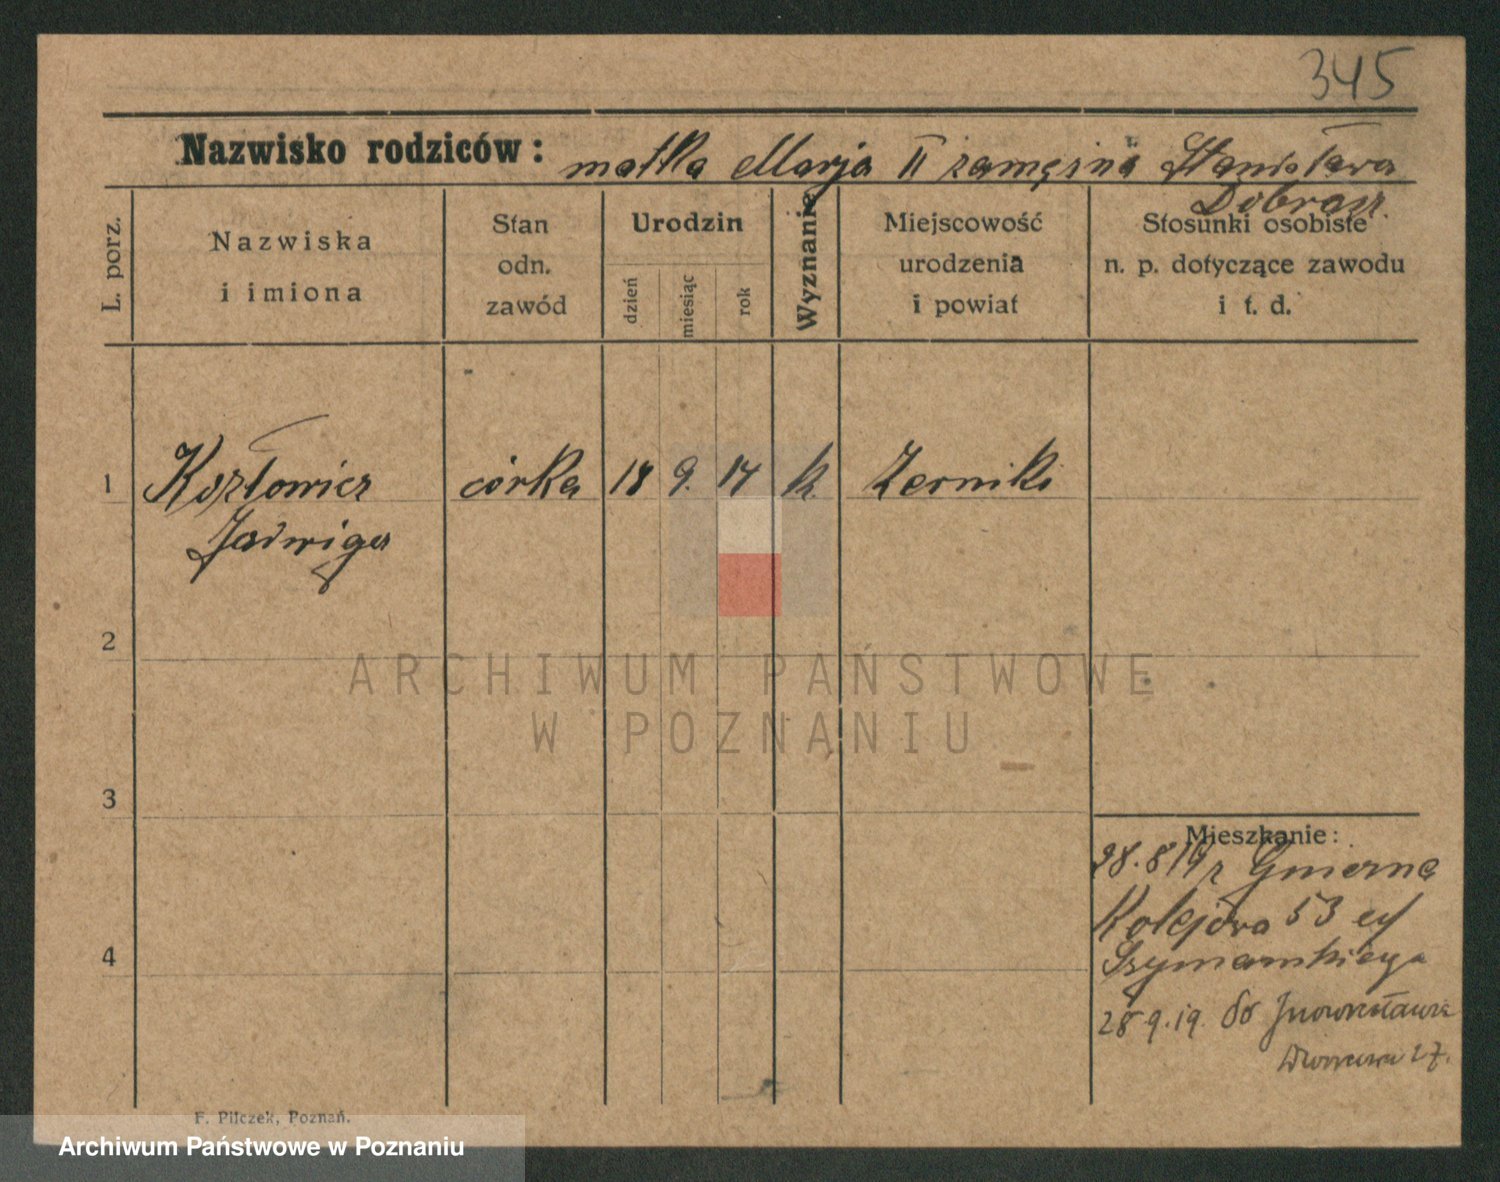 345
Nazwisko rodziców: matka Marja II zamężna Stanisława
Dobrosz.
L. porz.
Nazwiska
i imiona
Stan
odn.
zawód
Urodzin
dzień
miesiąc
rok
Wyznanie
Miejscowość
urodzenia
i powiat
Stosunki osobiste
n. p. dotyczące zawodu
i t. d.
1 Kozłowicz córka 18 9. 14 k. Zerniki
Jadwiga
2
3
4
Mieszkanie:
28.8 19 r Gnierna
Kolejowa 53 u/
Szymańskiego
28.9.19. do Inowrocławia
27.
F. Pilczek, Poznań.
ARCHIWUM PAŃSTWOWE
W POZNANIU
Archiwum Państwowe w Poznaniu